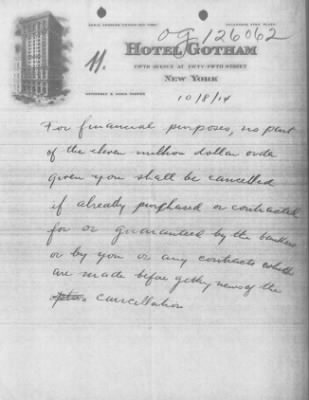 OG 126062
11.
HOTEL GOTHAM
FIFTH AVENUE AT FIFTY-FIFTH STREET
NEW YORK
10/8/14
For financial purposes, no part
of the eleven million dollar order
given you shall be cancelled
if already purchased or contracted
for or guaranteed by the bankers
or by you or any contracts
are made before getting news of the
cancellation